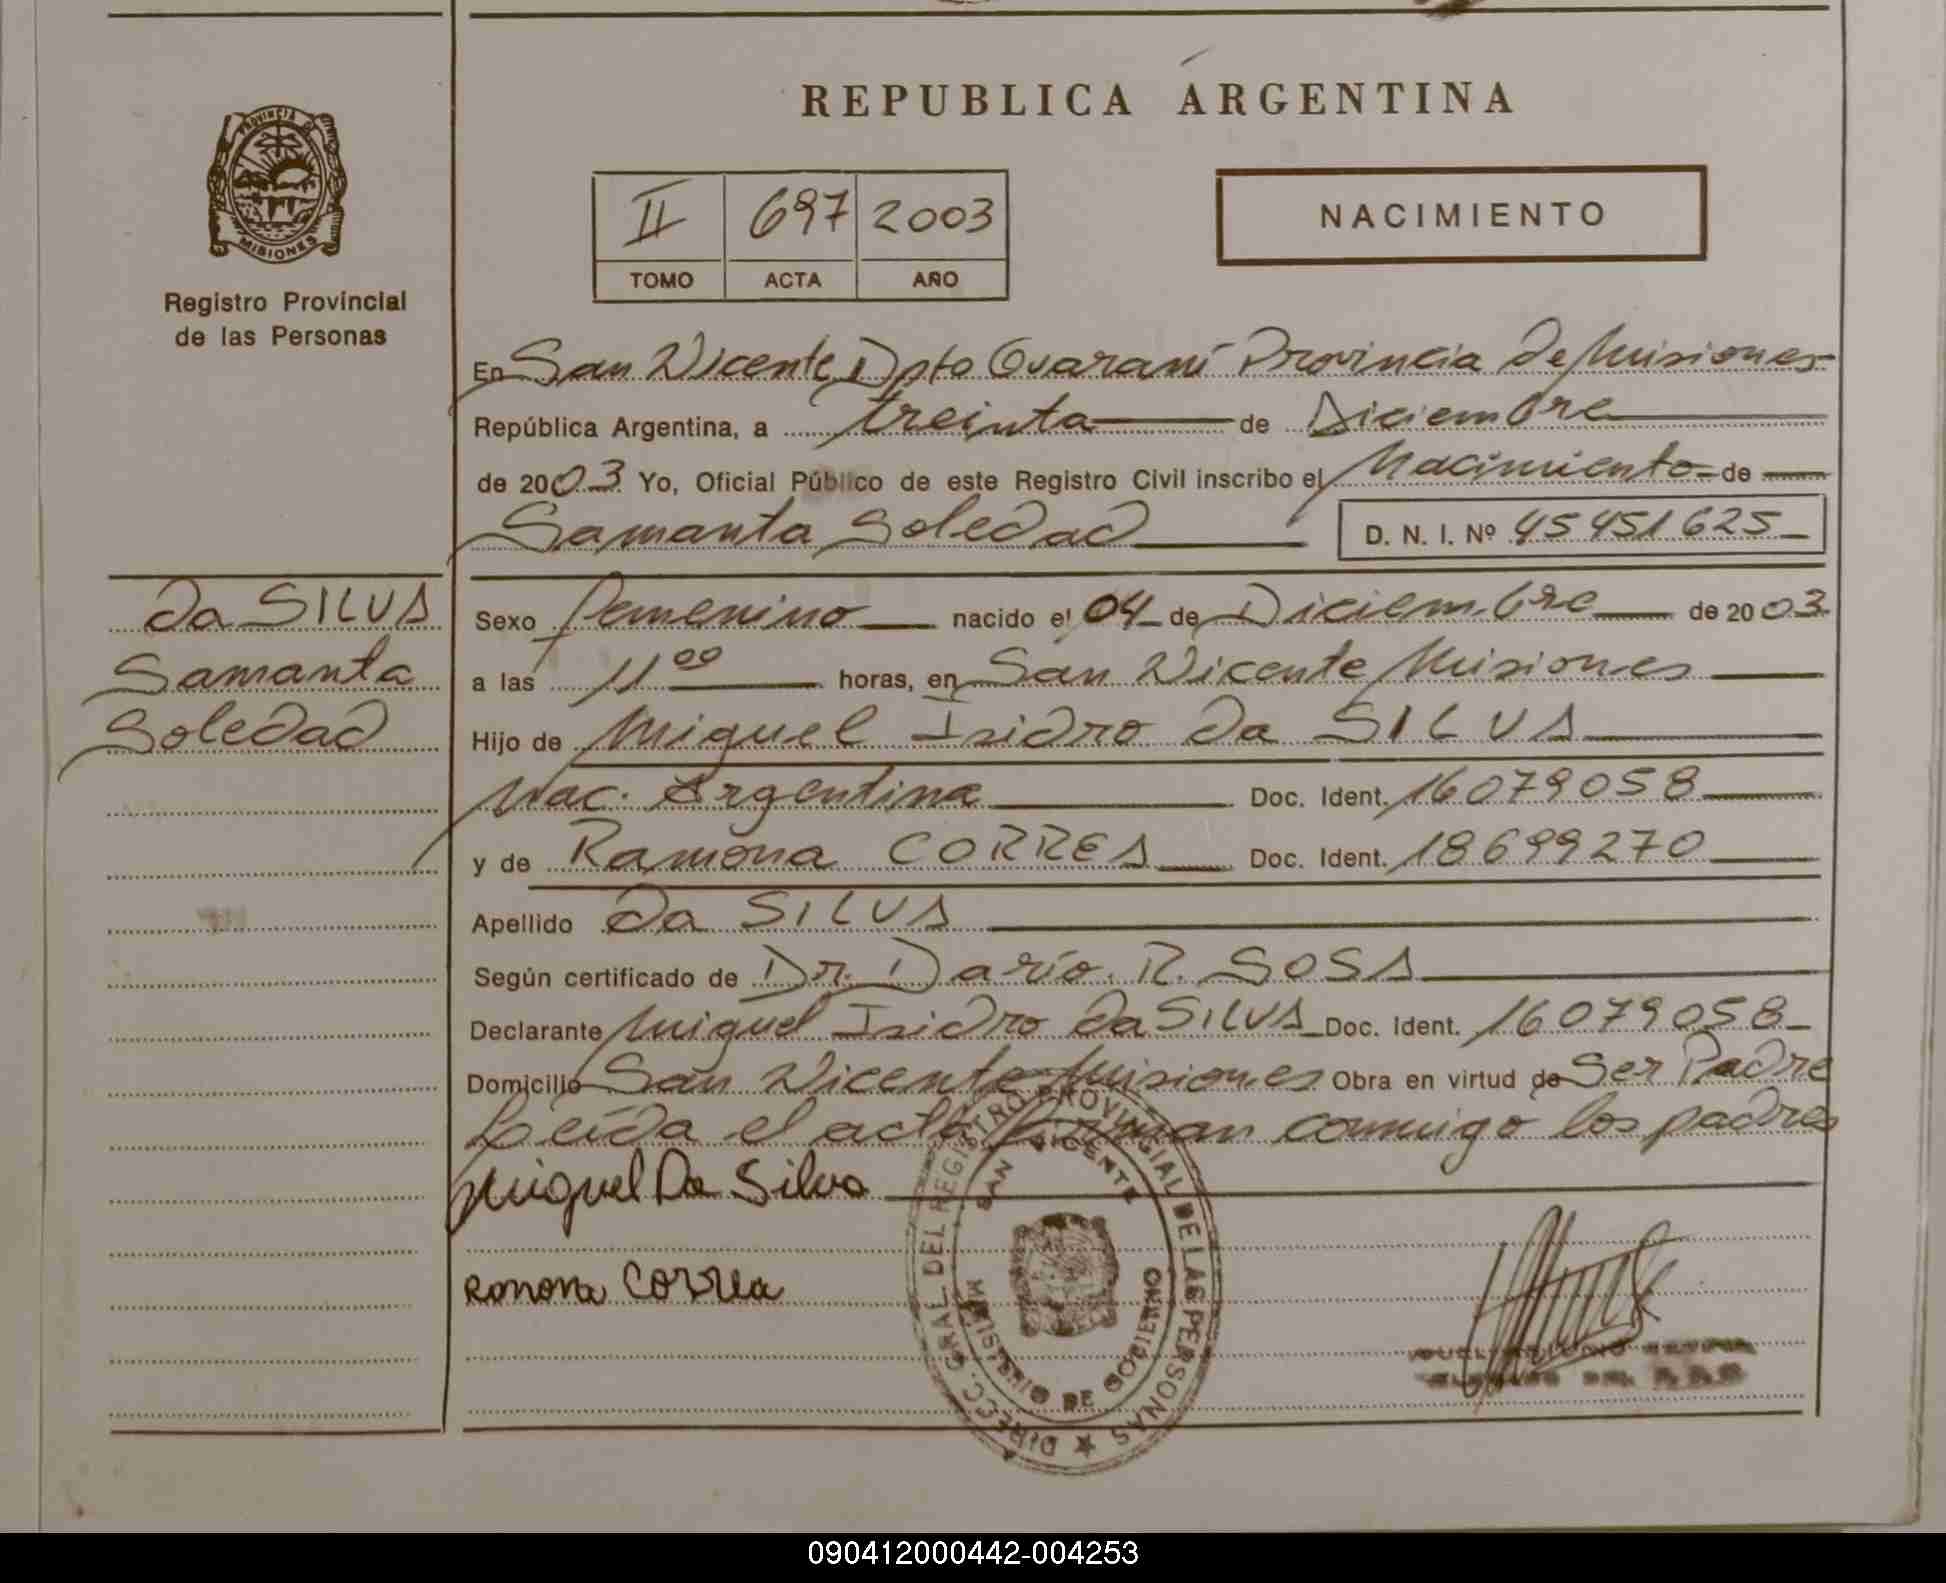 REPUBLICA ARGENTINA
PROVINCIA DE
MISIONES
Registro Provincial
de las Personas
II 697 2003
TOMO ACTA AÑO
NACIMIENTO
En San Vicente Dpto Guaraní Provincia de Misiones
República Argentina, a treinta de Diciembre
de 2003 Yo, Oficial Público de este Registro Civil inscribo el Nacimiento de
Samanta Soledad D. N. I. Nº 45451625
da SILVA
Samanta
Soledad
Sexo femenino nacido el 04 de Diciembre de 2003
a las 11 00 horas, en San Vicente Misiones
Hijo de Miguel Isidro da SILVA
Nac. Argentina Doc. Ident. 16079058
y de Ramona CORREA Doc. Ident. 18699270
Apellido da SILVA
Según certificado de Dr. Darío. R. SOSA
Declarante Miguel Isidro da SILVA Doc. Ident. 16079058
Domicilio San Vicente Misiones Obra en virtud de Ser Padre
Leída el acta firman conmigo los padres
Miguel Da Silva
Ramona Correa
DIRECC. GRAL DEL REGISTRO PROVINCIAL DE LAS PERSONAS
SAN VICENTE
MINISTERIO DE GOBIERNO
090412000442-004253